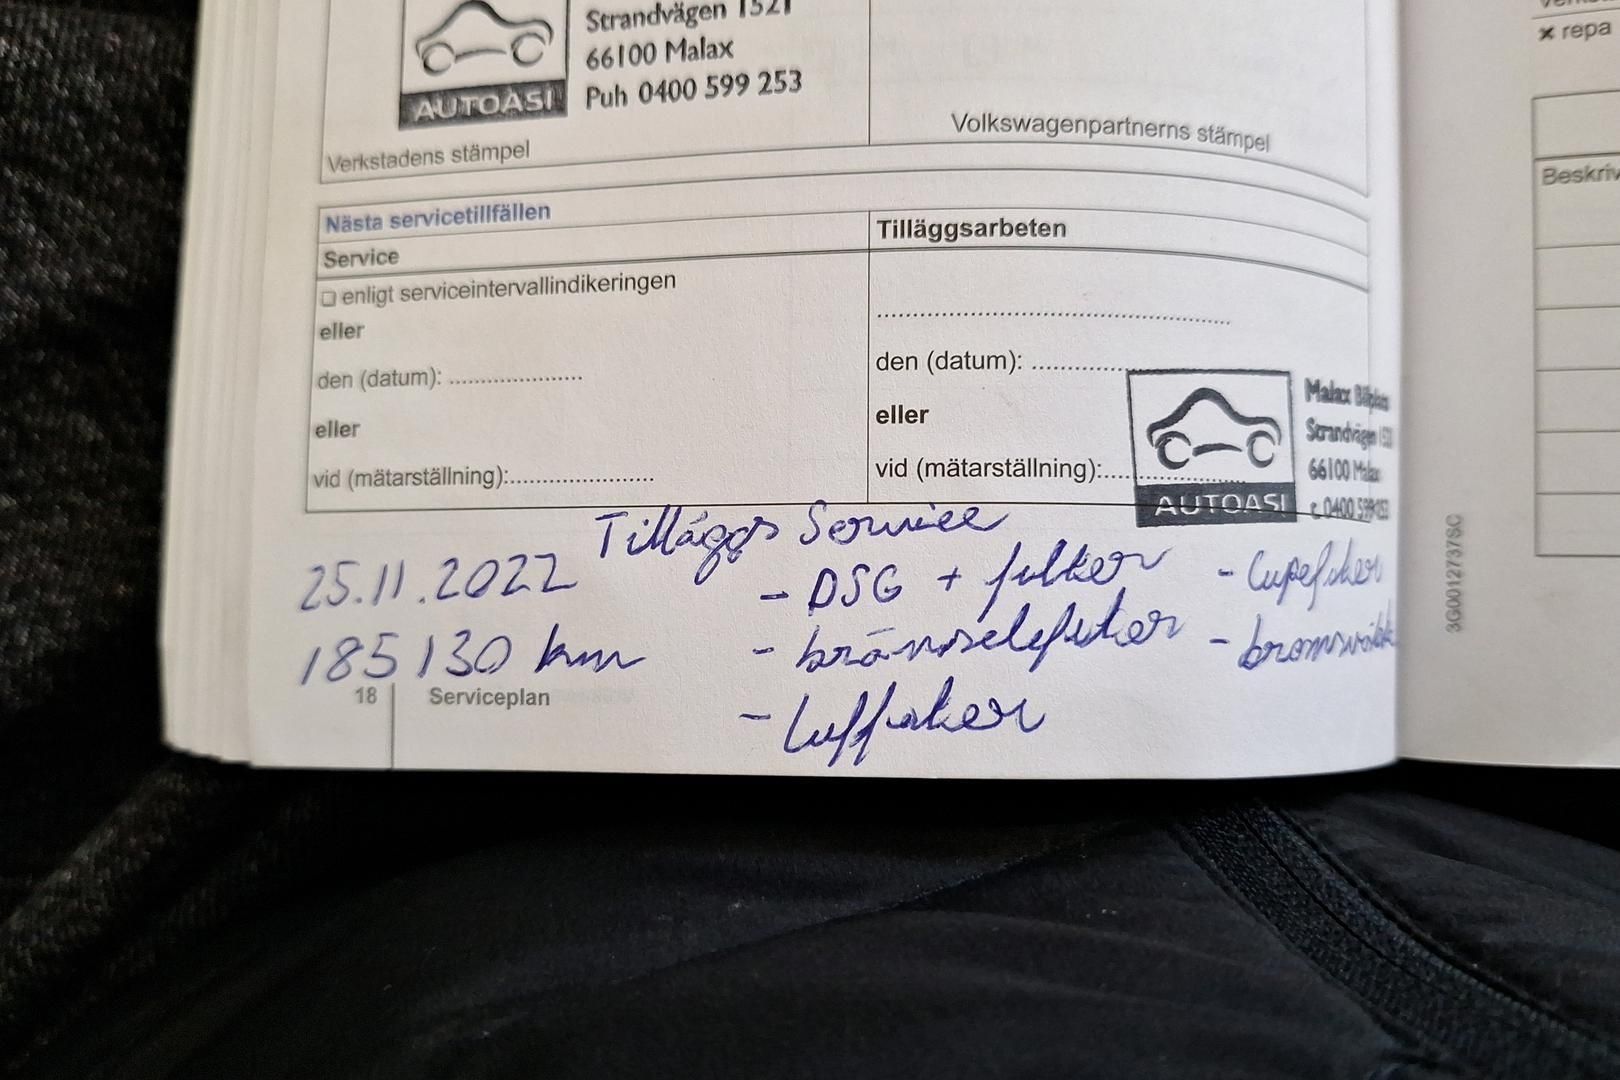 Strandvägen 1521
66100 Malax
AUTOASI
Puh 0400 599 253
Verkstadens stämpel
Volkswagenpartnerns stämpel
Nästa servicetillfällen
Service
Tilläggsarbeten
❏ enligt serviceintervallindikeringen
eller
den (datum): ......................
eller
vid (mätarställning):........................
den (datum): ................
eller
vid (mätarställning):........................
AUTOASI
Malax
Strandvägen
66100 Malax
Tilläggs Service
25.11.2022
185130 km
- DSG + filter
- bränslefilter
- luftfilter
- kupefilter
18
Serviceplan
3G0012737SC
× repa
Beskriv